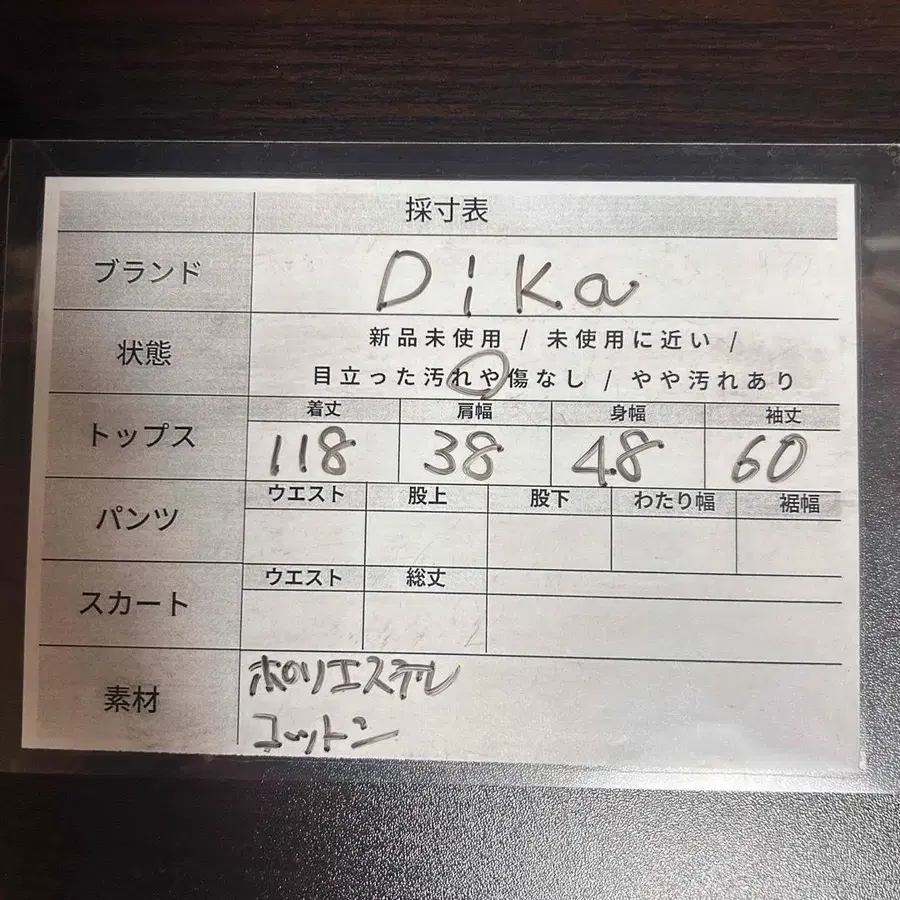 採寸表
ブランド Dika
状態 新品未使用 / 未使用に近い /
目立った汚れや傷なし / やや汚れあり
トップス 着丈 肩幅 身幅 袖丈
118 38 48 60
パンツ ウエスト 股上 股下 わたり幅 裾幅
スカート ウエスト 総丈
素材 ポリエステル
コットン